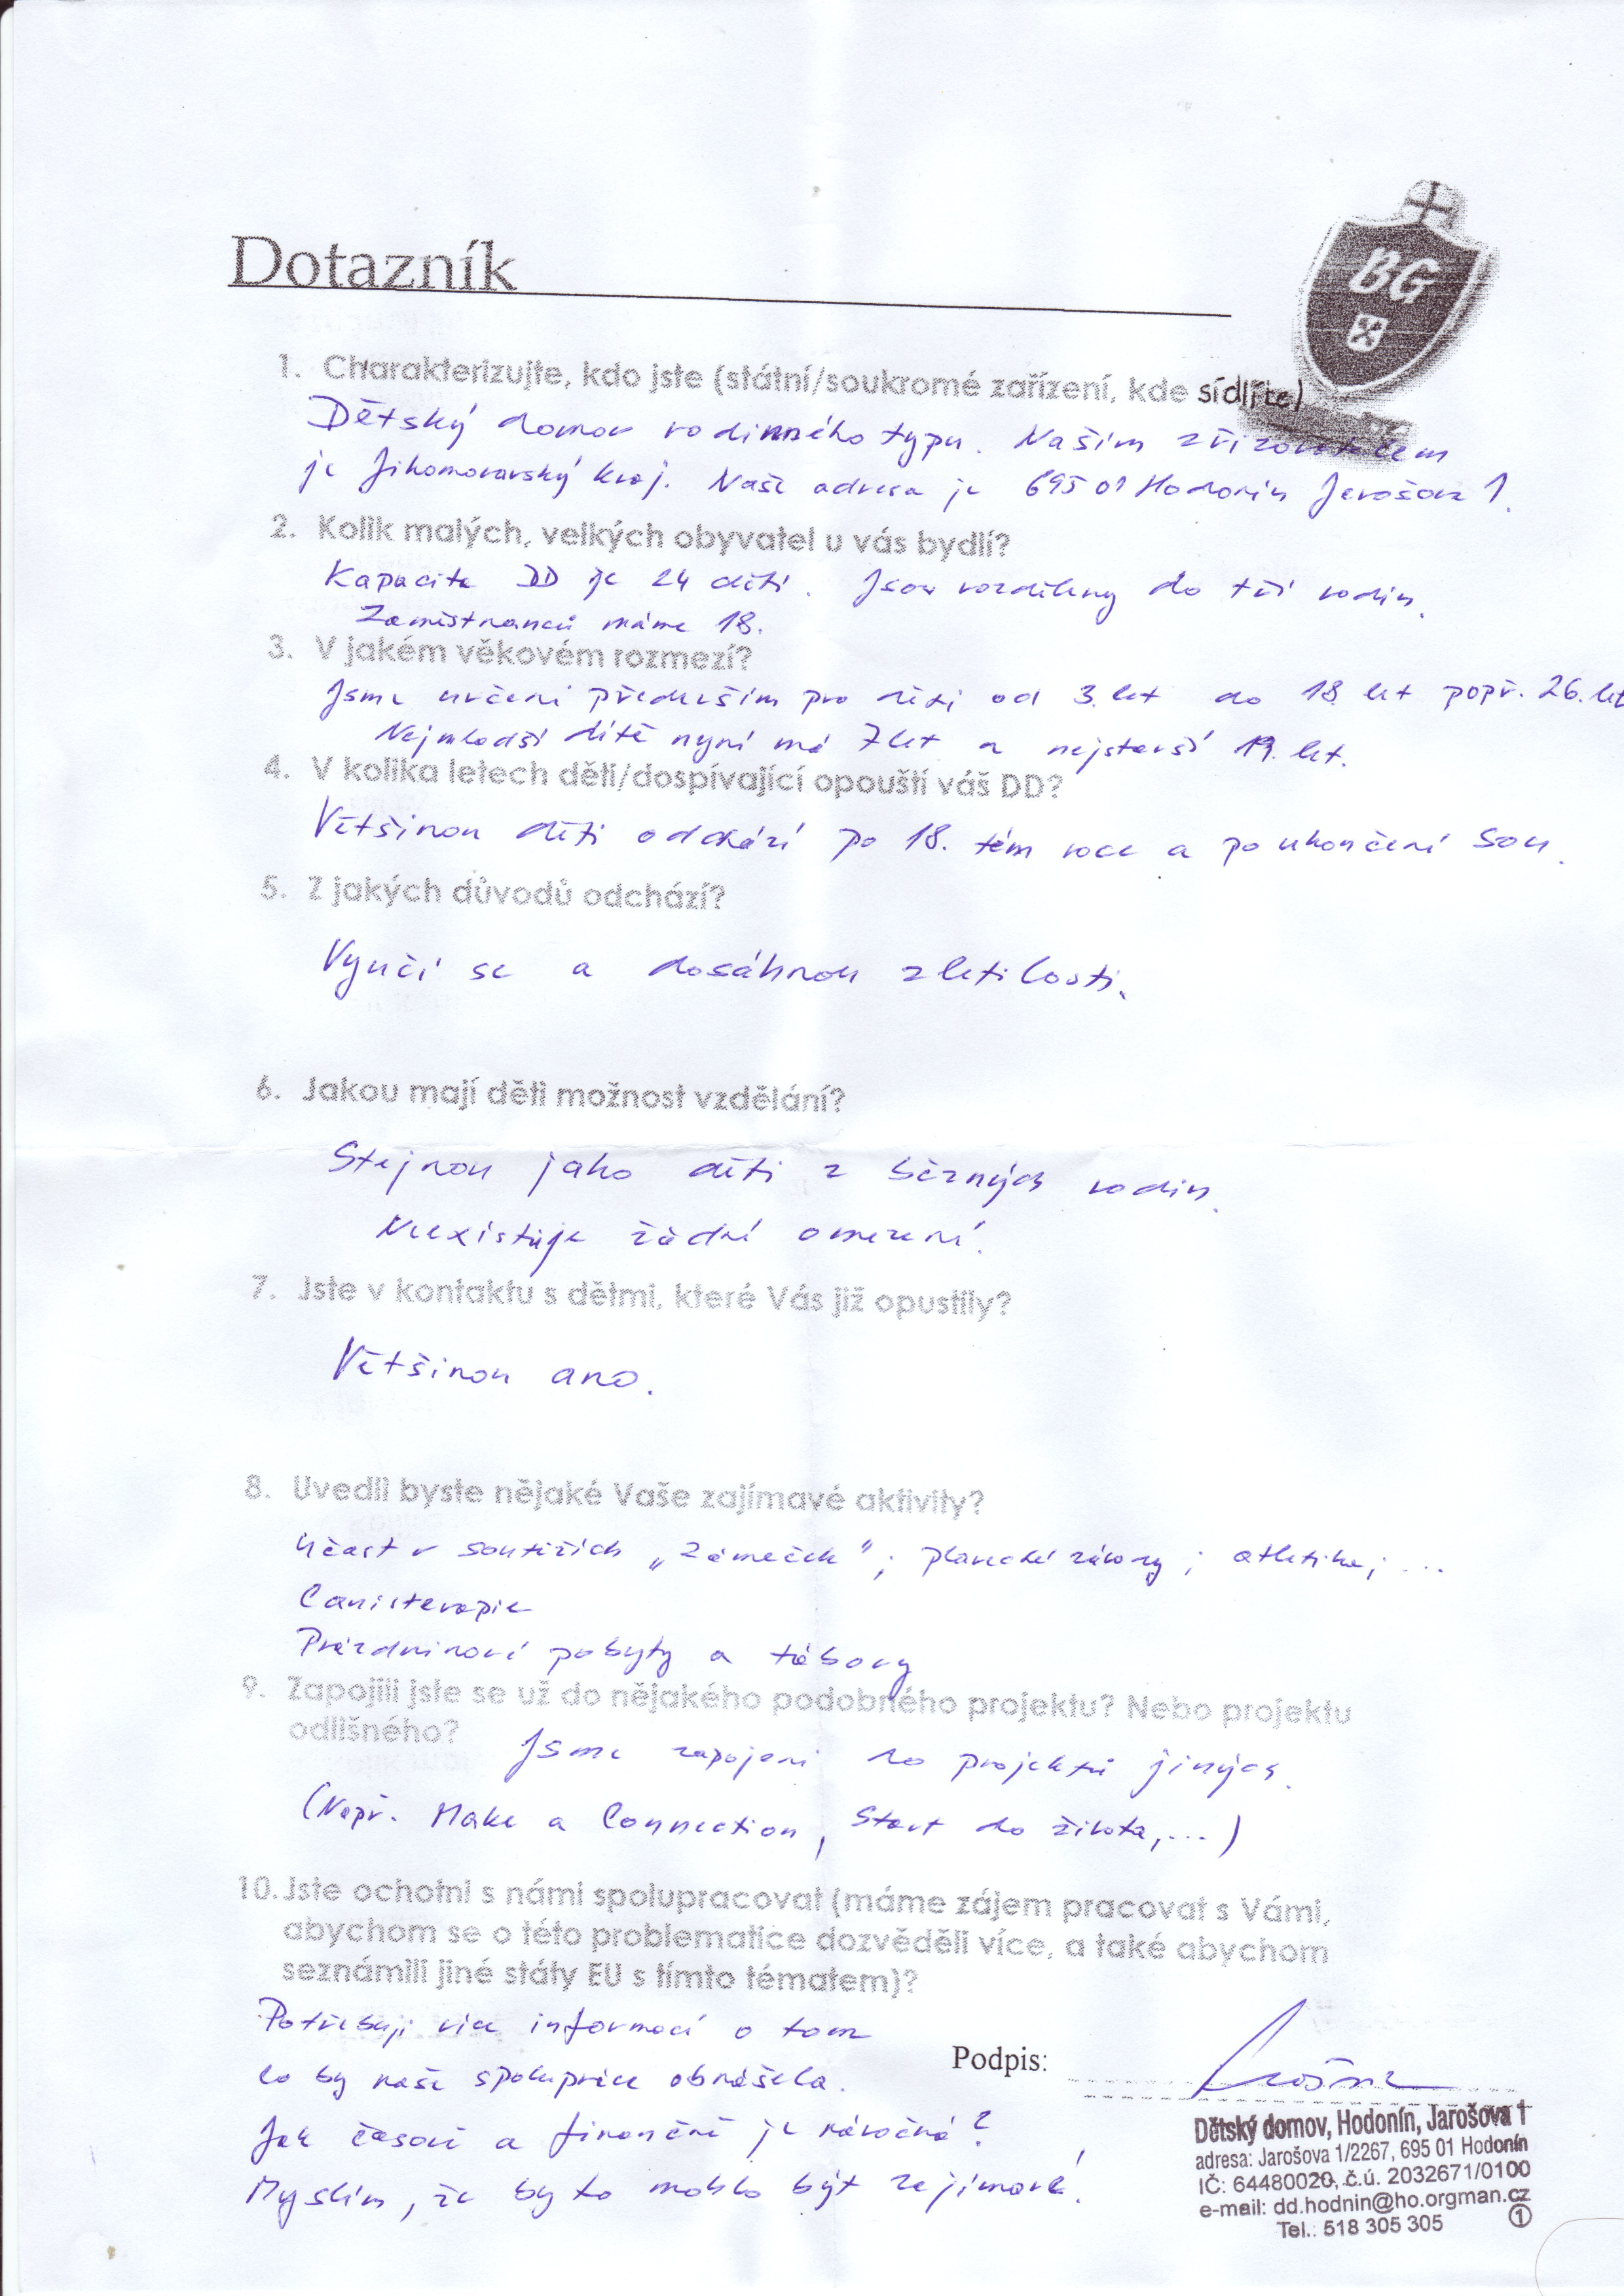 Dotazník
BG
1. Charakterizujte, kdo jste (státní/soukromé zařízení, kde sídlíte)
Dětský domov rodinného typu. Našim zřizovatelem
je Jihomoravský kraj. Naše adresa je 695 01 Hodonín Jarošova 1.
2. Kolik malých, velkých obyvatel u vás bydlí?
Kapacita DD je 24 dětí. Jsou rozděleny do tří rodin.
Zaměstnanců máme 18.
3. V jakém věkovém rozmezí?
Jsme určeni především pro děti od 3 let do 18 let popř. 26. let
Nejmladší dítě nyní má 7 let a nejstarší 19. let.
4. V kolika letech děti/dospívající opouští váš DD?
Většinou děti odchází po 18. tém roce a po ukončení SOU.
5. Z jakých důvodů odchází?
Vyučí se a dosáhnou zletilosti.
6. Jakou mají děti možnost vzdělání?
Stejnou jako děti z běžných rodin.
Neexistuje žádné omezení.
7. Jste v kontaktu s dětmi, které Vás již opustily?
Většinou ano.
8. Uvedli byste nějaké Vaše zajímavé aktivity?
Účast v soutěžích „Zámeček"; plavecké závody; atletika; ...
Canisterapie
Prázdninové pobyty a tábory
9. Zapojili jste se už do nějakého podobného projektu? Nebo projektu
odlišného? Jsme zapojeni do projektů jiných.
(Např. Make a Connection, Start do života, ...)
10. Jste ochotni s námi spolupracovat (máme zájem pracovat s Vámi,
abychom se o této problematice dozvěděli více, a také abychom
seznámili jiné státy EU s tímto tématem)?
Potřebuji více informací o tom
co by naše spolupráce obnášela.
Jak časově a finančně je náročná?
Myslím, že by to mohlo být zajímavé.
Podpis:
Dětský domov, Hodonín, Jarošova 1
adresa: Jarošova 1/2267, 695 01 Hodonín
IČ: 64480020, č.ú. 2032671/0100
e-mail: dd.hodnin@ho.orgman.cz
Tel.: 518 305 305 1